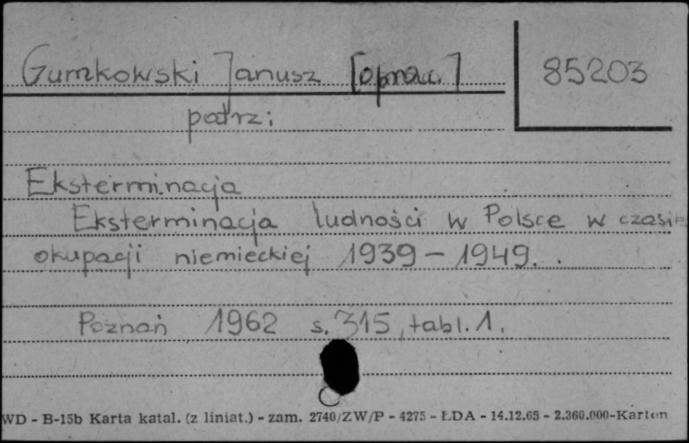 Gumkowski Janusz [oprac.] 85203
patrz:
Eksterminacja
Eksterminacja ludności w Polsce w czasie
okupacji niemieckiej 1939 - 1949.
Poznań 1962 s. 315, tabl. 1.
WD - B-15b Karta katal. (z liniat.) - zam. 2740/ZW/P - 4275 - ŁDA - 14.12.65 - 2.360.000-Karton